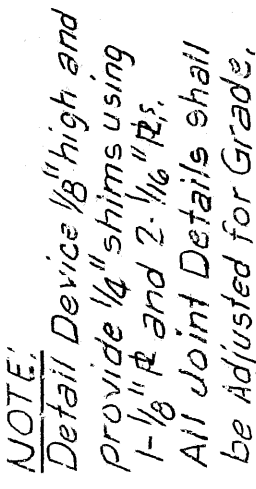 NOTE:
Detail Device 1/8" high and
provide 1/4" shims using
1-1/8" ℞ and 2-1/16" ℞s.
All Joint Details shall
be Adjusted for Grade.